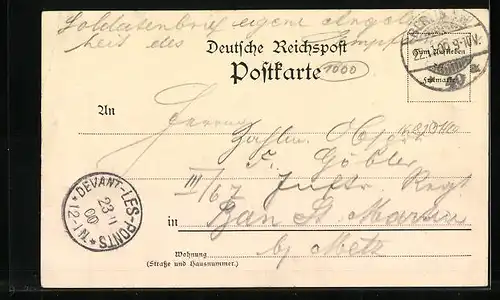 Soldatenbrief eigene Angele
heit des
Deutsche Reichspost
Postkarte
1000
Zum Aufkleben
Freimarke
22.11.00.9-10V.
An
Herrn
F. Göbler
III/67 Inftr. Regt
in Ban St. Martin
by Metz
Wohnung
(Straße und Hausnummer.)
DEVANT-LES-PONTS
23 11
00
*12-1N.*